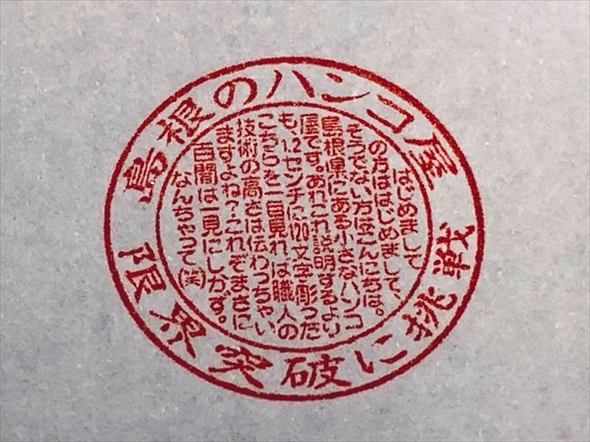 島根のハンコ屋
はじめまして
の方ははじめまして、
そうでない方はこんにちは。
島根県にある小さなハンコ
屋です。あれこれ説明するより
も、1.2センチに120文字彫った
こちらを一目見れば職人の
技術の高さは伝わっちゃい
ますよね?これぞまさに
百聞は一見にしかず。
なんちゃって(笑)
限界突破に挑戦